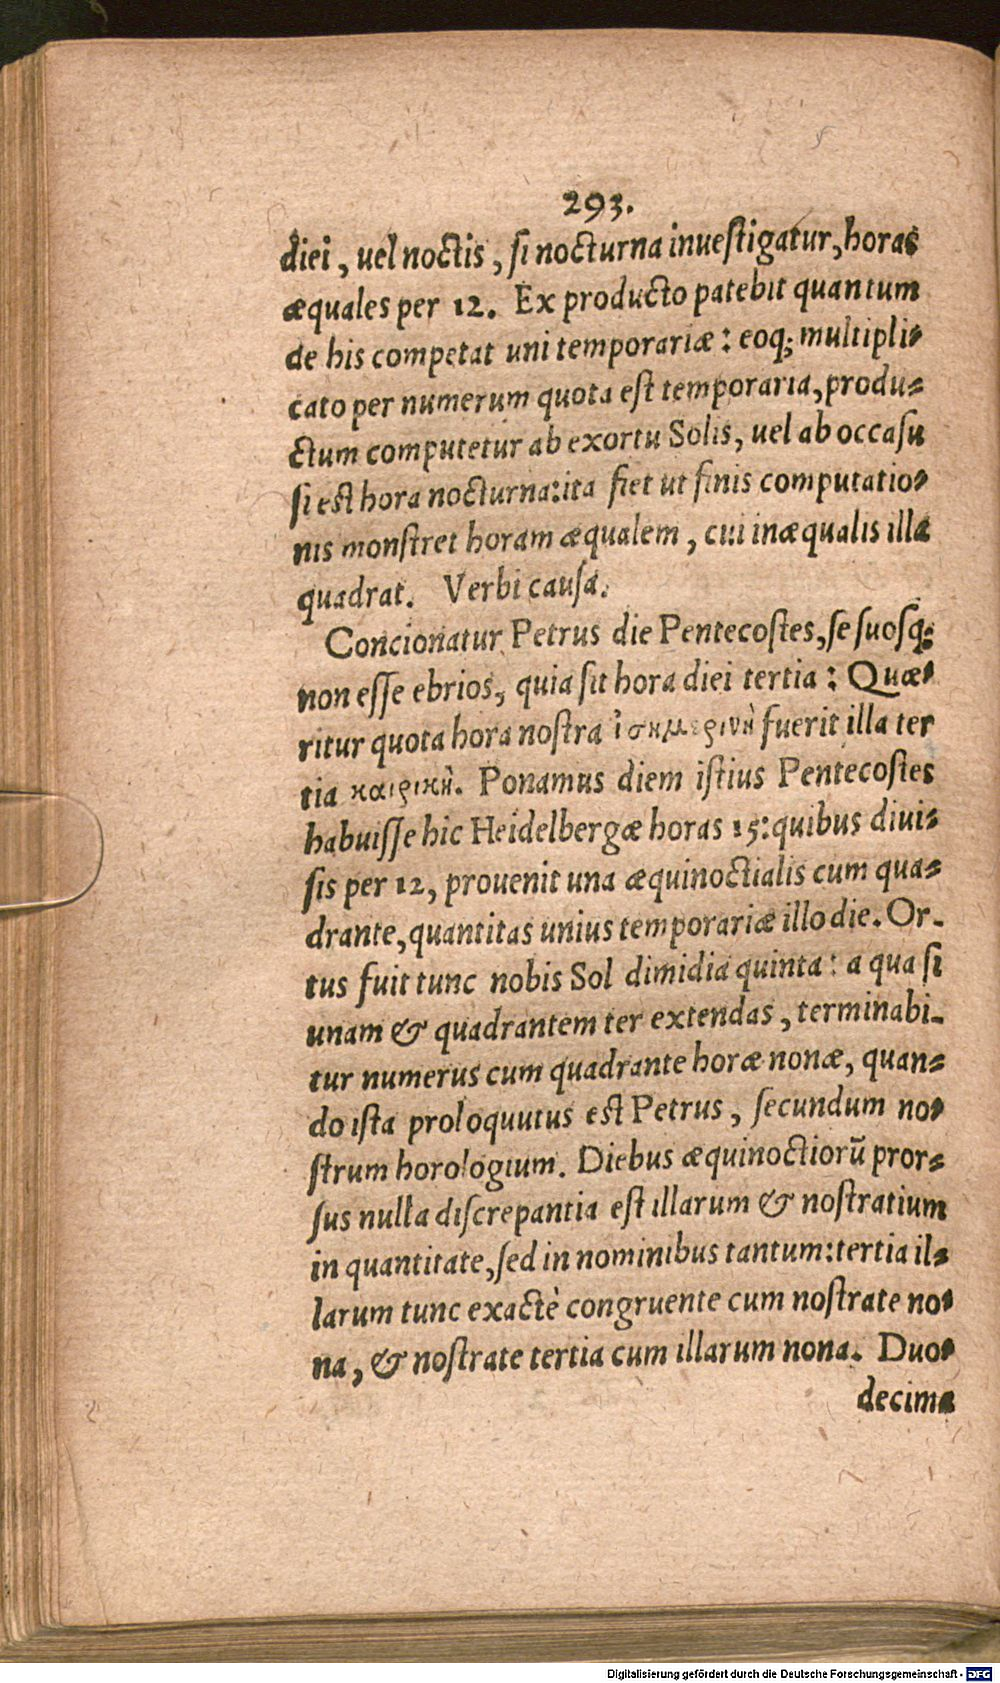 293.
diei, uel noctis, ſi nocturna inueſtigatur, horas
æquales per 12. Ex producto patebit quantum
de his competat uni temporariæ: eoq; multipli-
cato per numerum quota eſt temporaria, produ-
ctum computetur ab exortu Solis, uel ab occaſu
ſi eſt hora nocturna: ita fiet ut finis computatio-
nis monſtret horam æqualem, cui inæqualis illa
quadrat. Verbi cauſa.
Concionatur Petrus die Pentecoſtes, ſe ſuosq;
non eſſe ebrios, quia ſit hora diei tertia: Quæ-
ritur quota hora noſtra ἰσημερινὴ fuerit illa ter
tia καιρικὴ. Ponamus diem iſtius Pentecoſtes
habuiſſe hic Heidelbergæ horas 15: quibus diui-
ſis per 12, prouenit una æquinoctialis cum qua-
drante, quantitas unius temporariæ illo die. Or-
tus fuit tunc nobis Sol dimidia quinta: a qua ſi
unam & quadrantem ter extendas, terminabi-
tur numerus cum quadrante horæ nonæ, quan-
do iſta proloquutus eſt Petrus, ſecundum no-
ſtrum horologium. Diebus æquinoctiorũ pror-
ſus nulla diſcrepantia eſt illarum & noſtratium
in quantitate, ſed in nominibus tantum: tertia il-
larum tunc exactè congruente cum noſtrate no-
na, & noſtrate tertia cum illarum nona. Duo-
decima
Digitalisierung gefördert durch die Deutsche Forschungsgemeinschaft - DFG